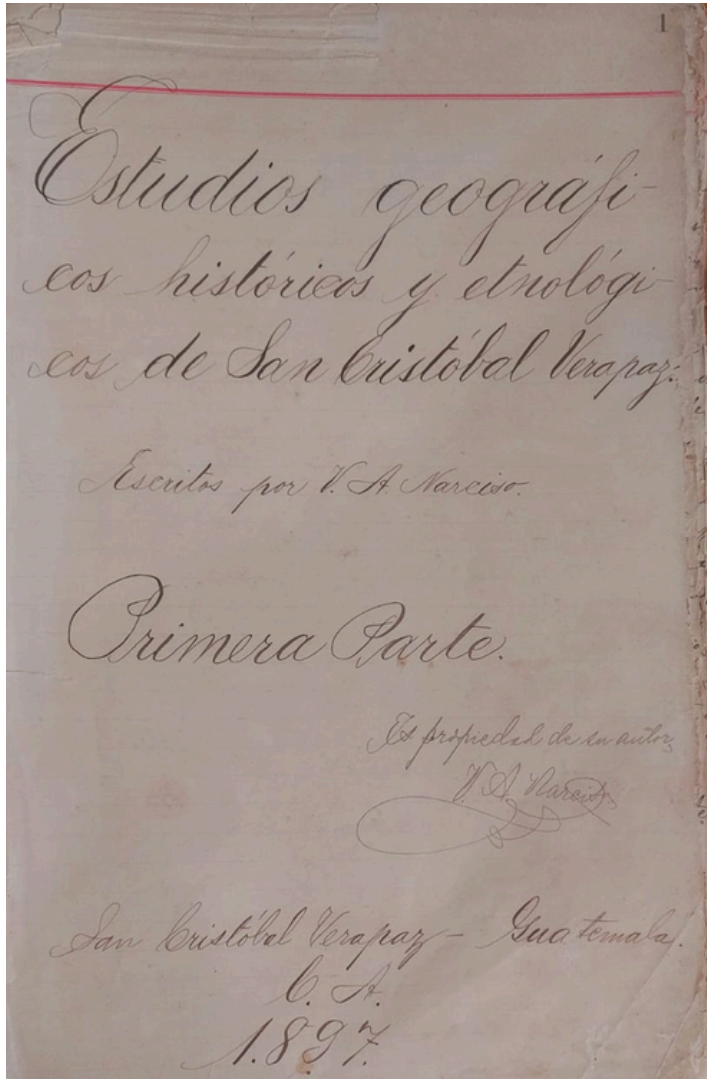 1
Estudios geográfi-
cos históricos y etnológi-
cos de San Cristóbal Verapaz:
Escritos por V. A. Narciso.
Primera Parte.
Es propiedad de su autor,
V. A. Narciso
San Cristóbal Verapaz - Guatemala.
C. A.
1.897.